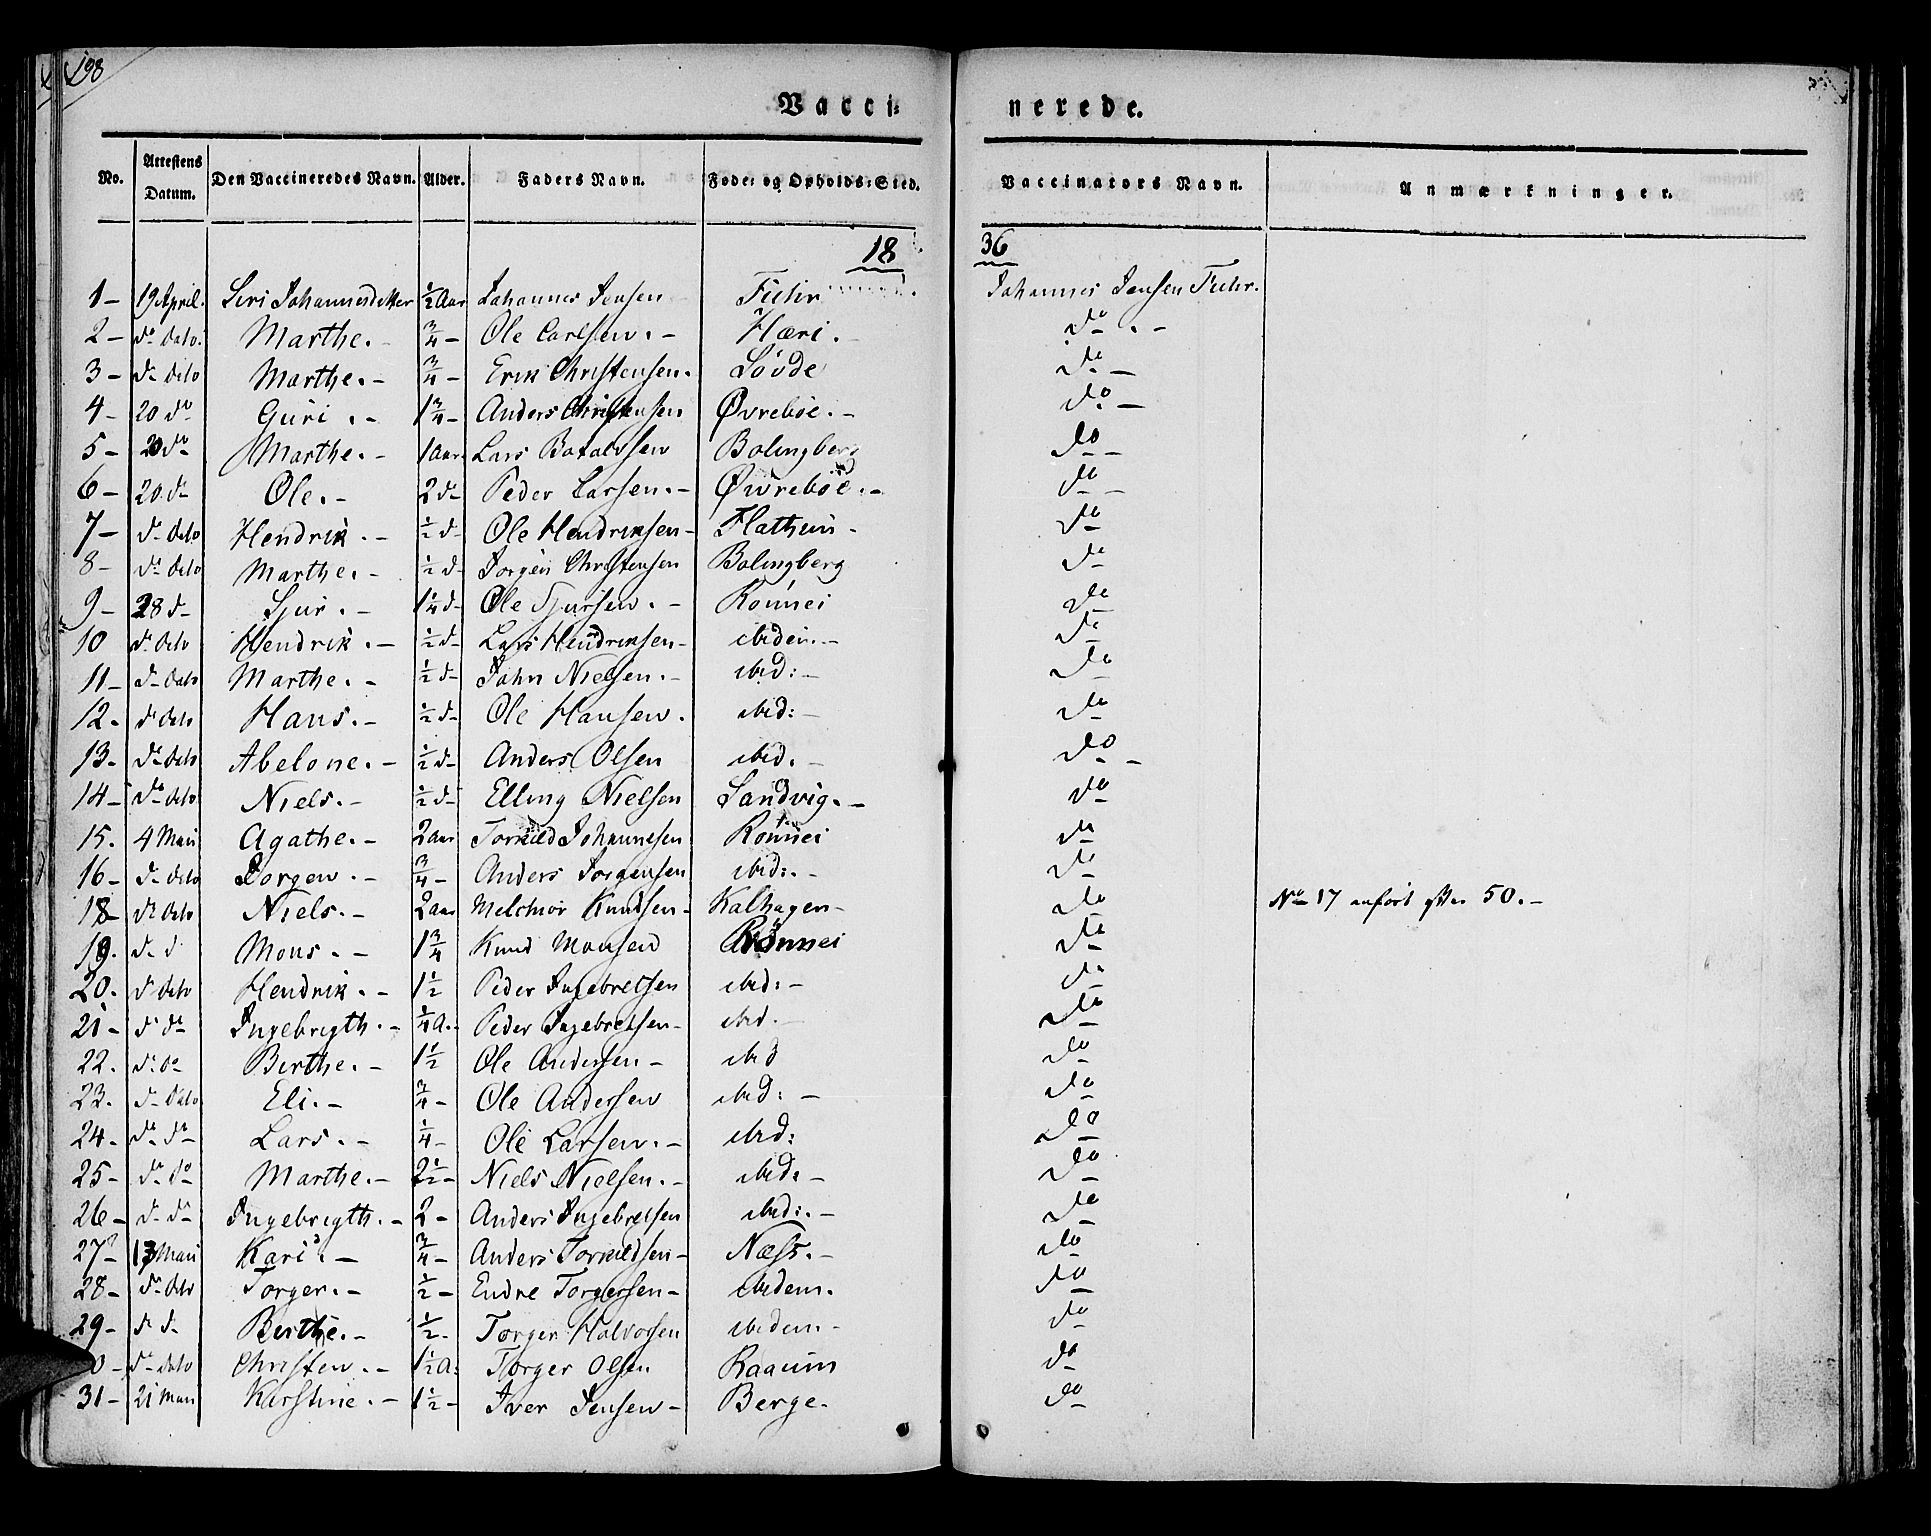 198
Vacci=
nerede.
No. Attestens Datum. Den Vaccineredes Navn. Alder. Faders Navn. Føde= og Opholds=Sted. Vaccinators Navn. Anmærkninger.
18 36
1 – 19 April. Siri Johannesdatter ½ Aar Johannes Jensen Fuhr Johannes Jensen Fuhr.
2 – do dato. Marthe. – ¾ – Ole Carlsen. – Hæri. do. –
3 – do dato Marthe. – ¾ – Erik Christensen. Søvde do –
4 – 20 do Guri. – 1¾ – Anders Christensen Øvrebøe. – do. –
5 – 20 do Marthe. – 1 Aar. Lars Botolvsen Bolingberg do –
6 – 20. do Ole. – 2 do Peder Larsen. – Øvrebøe. – do –
7 – do dato Hendrik. – ½ d – Ole Hendriksen – Flathuin – do
8 – do dato Marthe. – ½ d – Jørgen Christensen Bolingberg do
9 – 28 d – Sjur. – 1¼ d – Ole Sjursen. – Rønnei do
10 do dato Hendrik. – ½ d – Lars Hendriksen – ibidem. – do
11 – do dato Marthe. – ½ d – John Nielsen. – ibid: – do
12. do dato Hans. – ½ d – Ole Hansen. ibid: – do
13 – do dato Abelone. – ½ d – Anders Olsen ibid. – do –
14 – do dato Niels. – ½ d – Elling Nielsen Sandvig. – do
15. 4 Mai Agathe. – 2 aar Torkild Johannesen Rønnei do
16 – do dato Jørgen. – ¾ – Anders Jørgensen ibid:. – do
18 – do dato Niels. – 2 aar Melchior Knudsen – Kalhagen – do No 17 anført efter 50. –
19. do d Mons. – 1¾ Knud Monsen Rønnei do
20. do dato Hendrik. – 1½ Peder Ingebretsen ibid: – do
21 – do do Ingebrigth. – ¼ a. – Peder Ingebretsen – ibid. – do
22. do do Birthe. – 1½ Ole Andersen – ibid do
23. do dato Eli. – ¾ – Ole Andersen ibid: – do
24 – do do Lars. – ¼ – Ole Larsen. – ibid: do
25 – do do Marthe. – 2½ – Niels Nielsen. – ibid: – do
26 – do do Ingebrigth. – 2 – Anders Ingebretsen ibid:. – do
27 13 Mai Kari. – ¾ – Anders Torkildsen – Næss. – do
28 – do dato Torger. – ½ – Endre Torgersen – ibidem. do
29 – do d – Berthe. – ½ – Torger Halvorsen ibidem – do
0 – do dato Christen. – 1½ a: Torger Olsen Raaum do
31 – 21 Mai Karstine. – 1½ – Iver Jensen – Berge. do